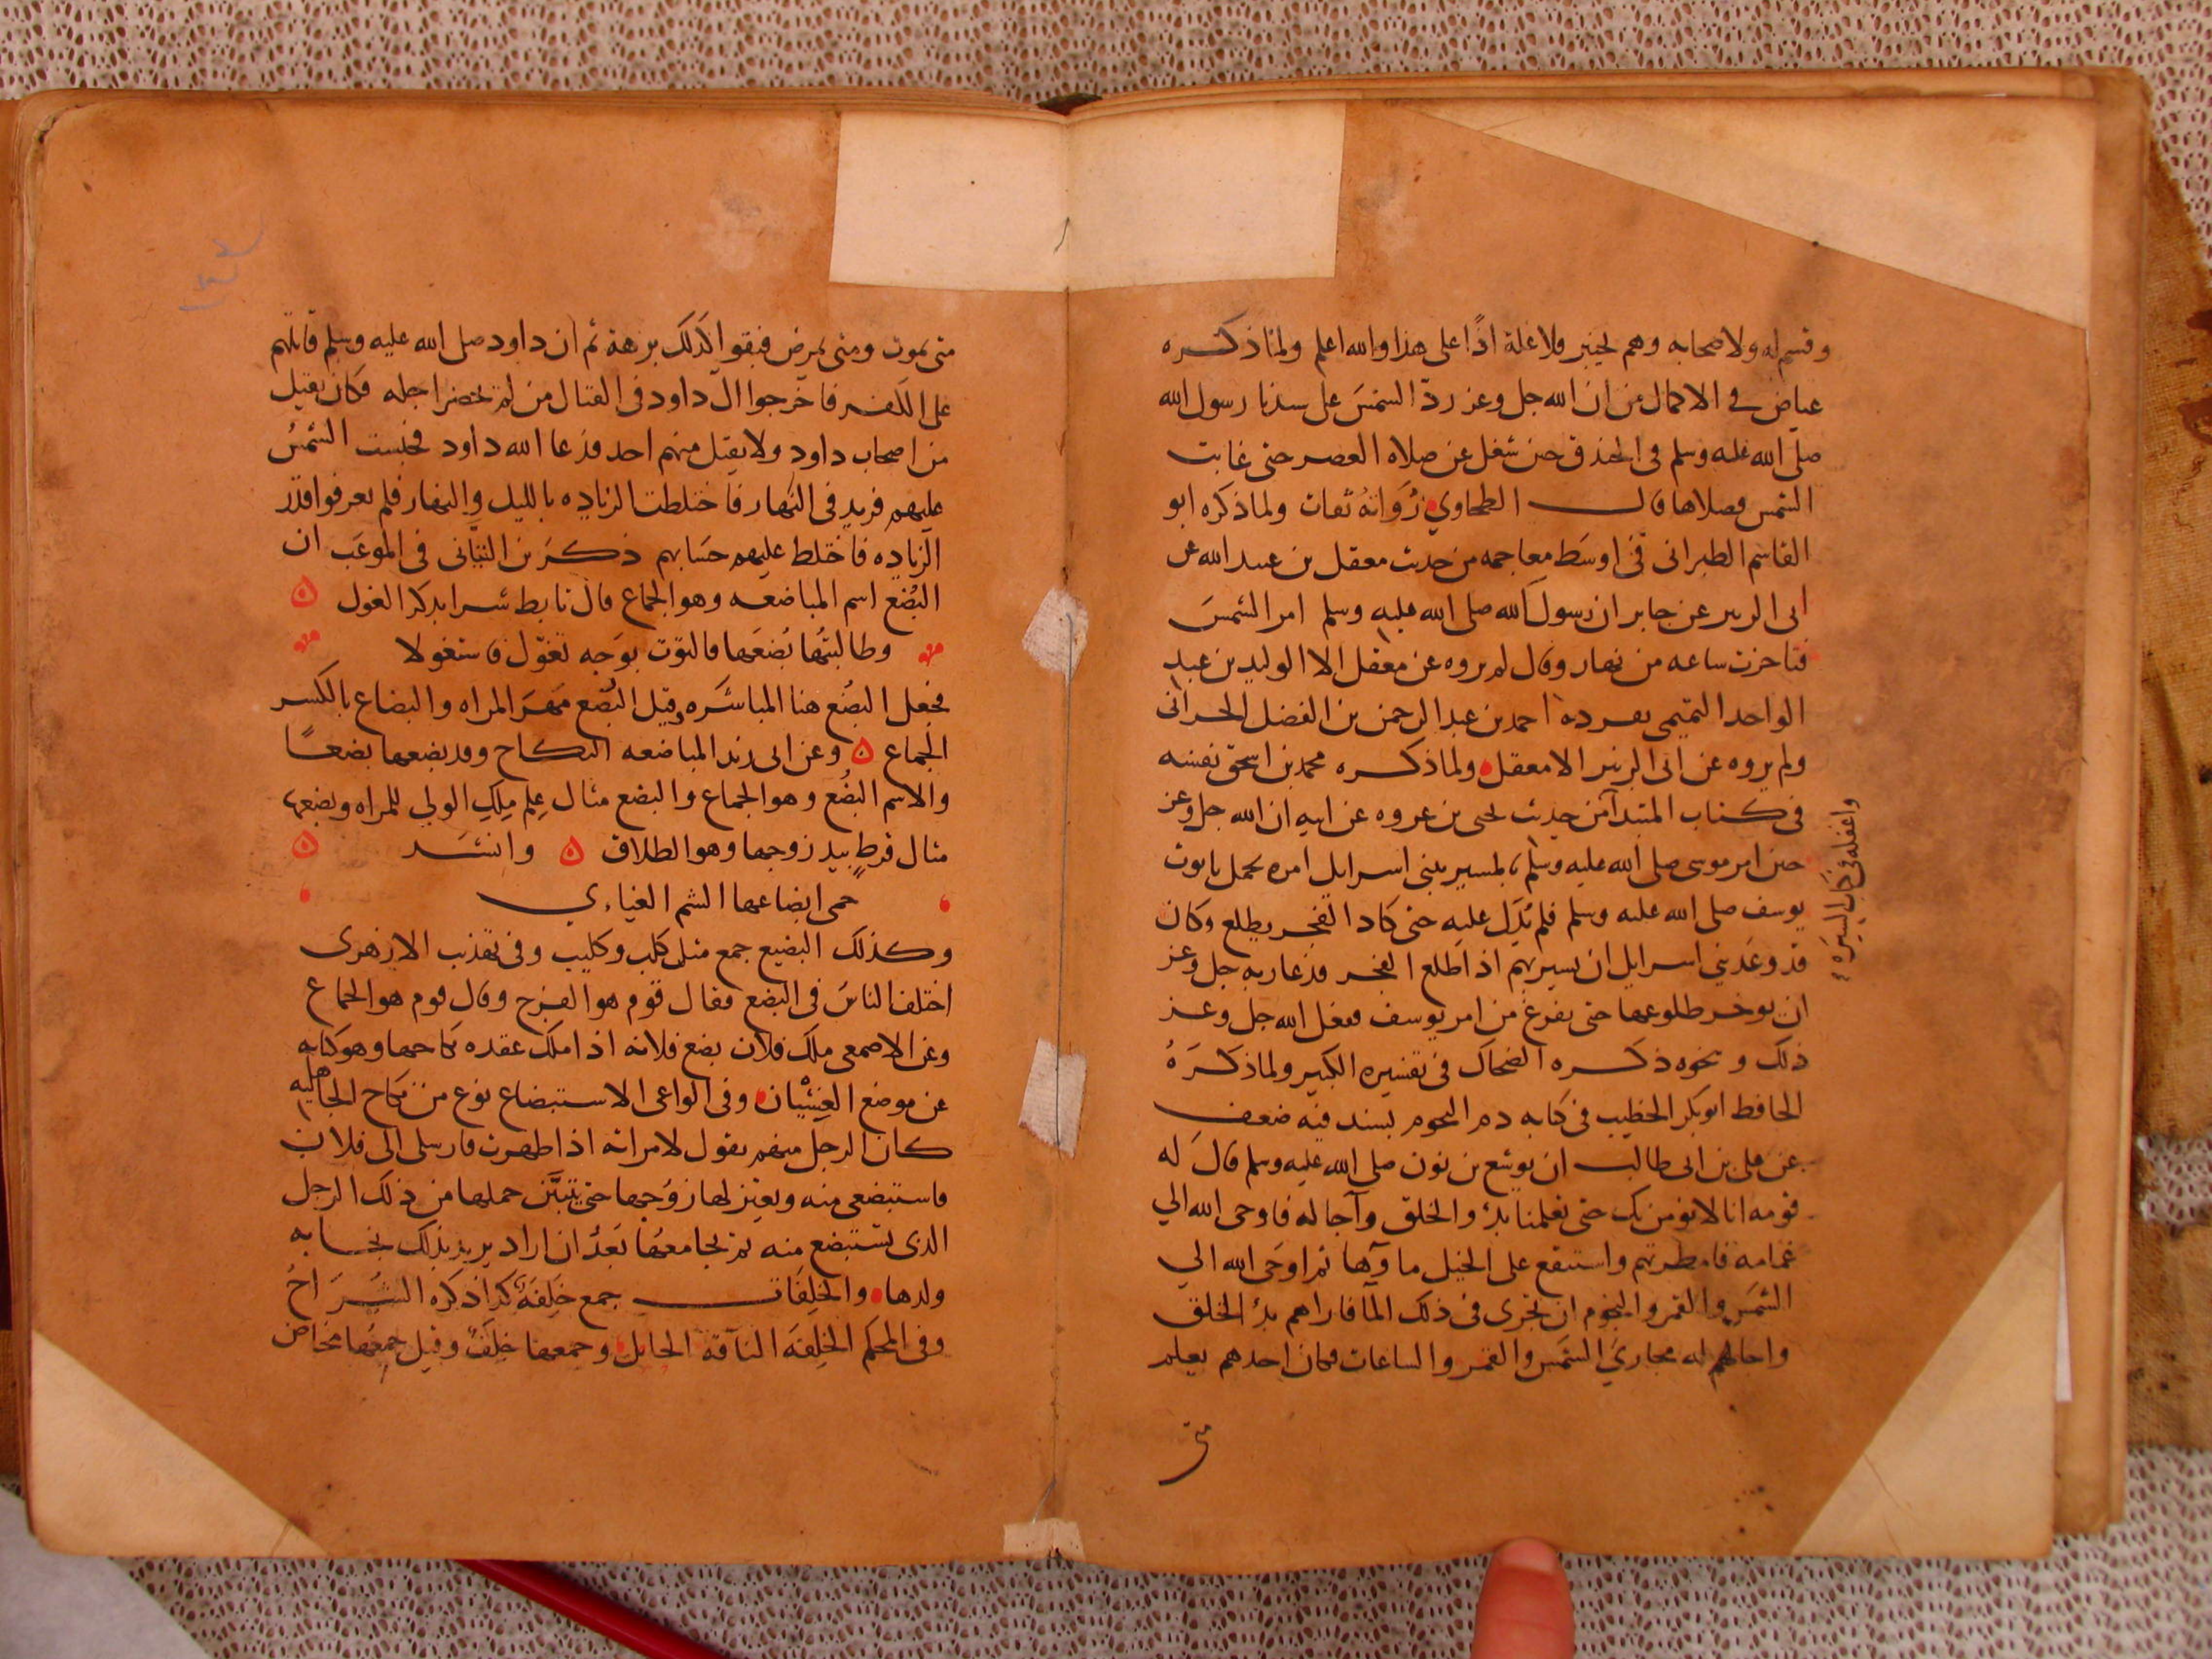 وقسم له ولاصحابه وهم بخيبر ولا غلة اذًا على هذا والله اعلم ولما ذكره
عياض في الاكمال من ان الله جل وعز ردّ الشمسَ على سيدنا رسول الله
صلى الله عليه وسلم في الخندق حين شغل عن صلاه العصر حتى غابت
الشمس فصلاها قال الطحاوي رُوَاتهُ ثقات ولما ذكره ابو
القاسم الطبراني في اوسَط معاجمه من حديث معقل بن عبيد الله عن
ابي الزبير عن جابر ان رسول الله صلى الله عليه وسلم امر الشمسَ
فتاخرت ساعه من نهار وقال لم يروه عن معقل الا الوليد بن عبد
الواحد التميمي تفرد به احمد بن عبد الرحمن بن الفضل الحراني
ولم يروه عن ابي الزبير الا معقل ولما ذكره محمد بن اسحق نفسه
في كتاب المبتدا من حديث يحيى بن عروه عن ابيه ان الله جل وعز
حين امر موسى صلى الله عليه وسلم بالمسير ببني اسرايل امره بحمل تابوت
يوسف صلى الله عليه وسلم فلم يُدَل عليه حتى كاد الفجر يطلع وكان
قد وعَد بني اسرايل ان يسير بهم اذا طلع الفجر فدعا ربه جل وعز
ان يوخر طلوعها حتى يفرغ من امر يوسف ففعل الله جل وعز
ذلك ونحوه ذكره الضحاك في تفسيره الكبير ولما ذكرَهُ
الحافظ ابو بكر الخطيب في كتابه ذم النجوم بسند فيه ضعف
عن علي بن ابي طالب ان يوشع بن نون صلى الله عليه وسلم قالَ له
قومه انا لا نومن بك حتى تعلمنا بدْو الخلق وآجاله فاوحى الله الي
غمامه فامطرتهم واستنقع على الجبل ما وآها ثم اوحَى الله الي
الشمس والقمر والنجوم ان تجري في ذلك المآ فاراهم بدْ الخلق
واجالهم له مجاريَ الشمَس والقمر والساعات فكان احدهم يعلم
متى
واغفله في كتاب السيره
متى يموت ومتى يمرض فبقوا كذلك برهة ثم ان داود صلى الله عليه وسلم قاتلهم
على الكفر فاخرجوا الى داود في القتال من لم تحضر اجله فكان يقتل
من اصحاب داود ولا يقتل منهم احد فدعا الله داود فحبست الشمسُ
عليهم فزيد في النهار فاختلطت الزياده بالليل والنهار فلم يعرفوا قدْر
الزياده فاختلط عليهم حسَابهم ذكرَ بن التيّاني في الموعَب ان
البُضع اسم المباضعه وهو الجماع قال تابط شرا يذكر الغول
وطالبتُها بُضعَها فالتوَت بوَجه تغوّل فاستغولا
فجعل البُضْع هنا المباشرَه وقيل البُضْع مَهرَ المراه والبضاع بالكسر
الجماع وعن ابي زيد المباضعه النكاح وقد بضعها بضعًا
والاسم البُضع وهو الجماع والبضع مثال عِلم مِلك الولي للمراه وبضعها
مثال قرطٍ بيد زوجها وهو الطلاق وانشد
حمى ابضاعها الشم الغياري
وكذلك البضيع جمع مثل كلب وكليب وفي تهذيب الازهرى
اختلف الناسَ في البضع فقال قوم هو الفرج وقال قوم هو الجماع
وعن الاصمعي ملك فلان بضع فلانه اذا ملك عقده نكاحها وهو كنايه
عن موضع الغِشْيَان وفي الواعي الاستبضاع نوع من نكاح الجاهليه
كان الرجل منهم يقول لامراته اذا طهرت فارسلى الى فلان
فاستبضعي منه ويعتزلها زوْجها حتى يتبيَّن حملها من ذلك الرجل
الذي تستبضع منه ثم يجامعُها بَعدُ ان اراد يريد بذلك نجابه
ولدها والخلِفَات جمع خَلِفَة كذا ذكره الشُرَّاحُ
وفى المحكم الخلِفَه الناقة الحامل وجمعها خلِفٌ وقيل جمعُها مخاض